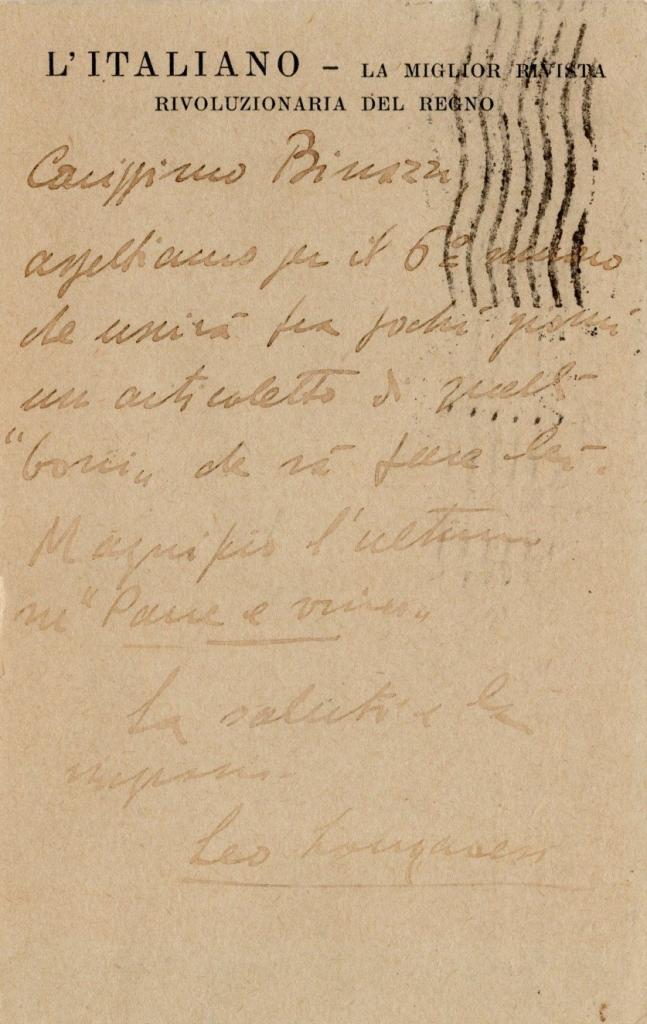 L'ITALIANO – LA MIGLIOR RIVISTA
RIVOLUZIONARIA DEL REGNO
Carissimo Binazzi,
aspettiamo per il 6º numero
che uscirà fra pochi giorni
un articoletto di quelli
"boni„ che sà fare lei.
Magnifico l'ultimo
"Pane e vino„
La saluto e la
Leo Longanesi